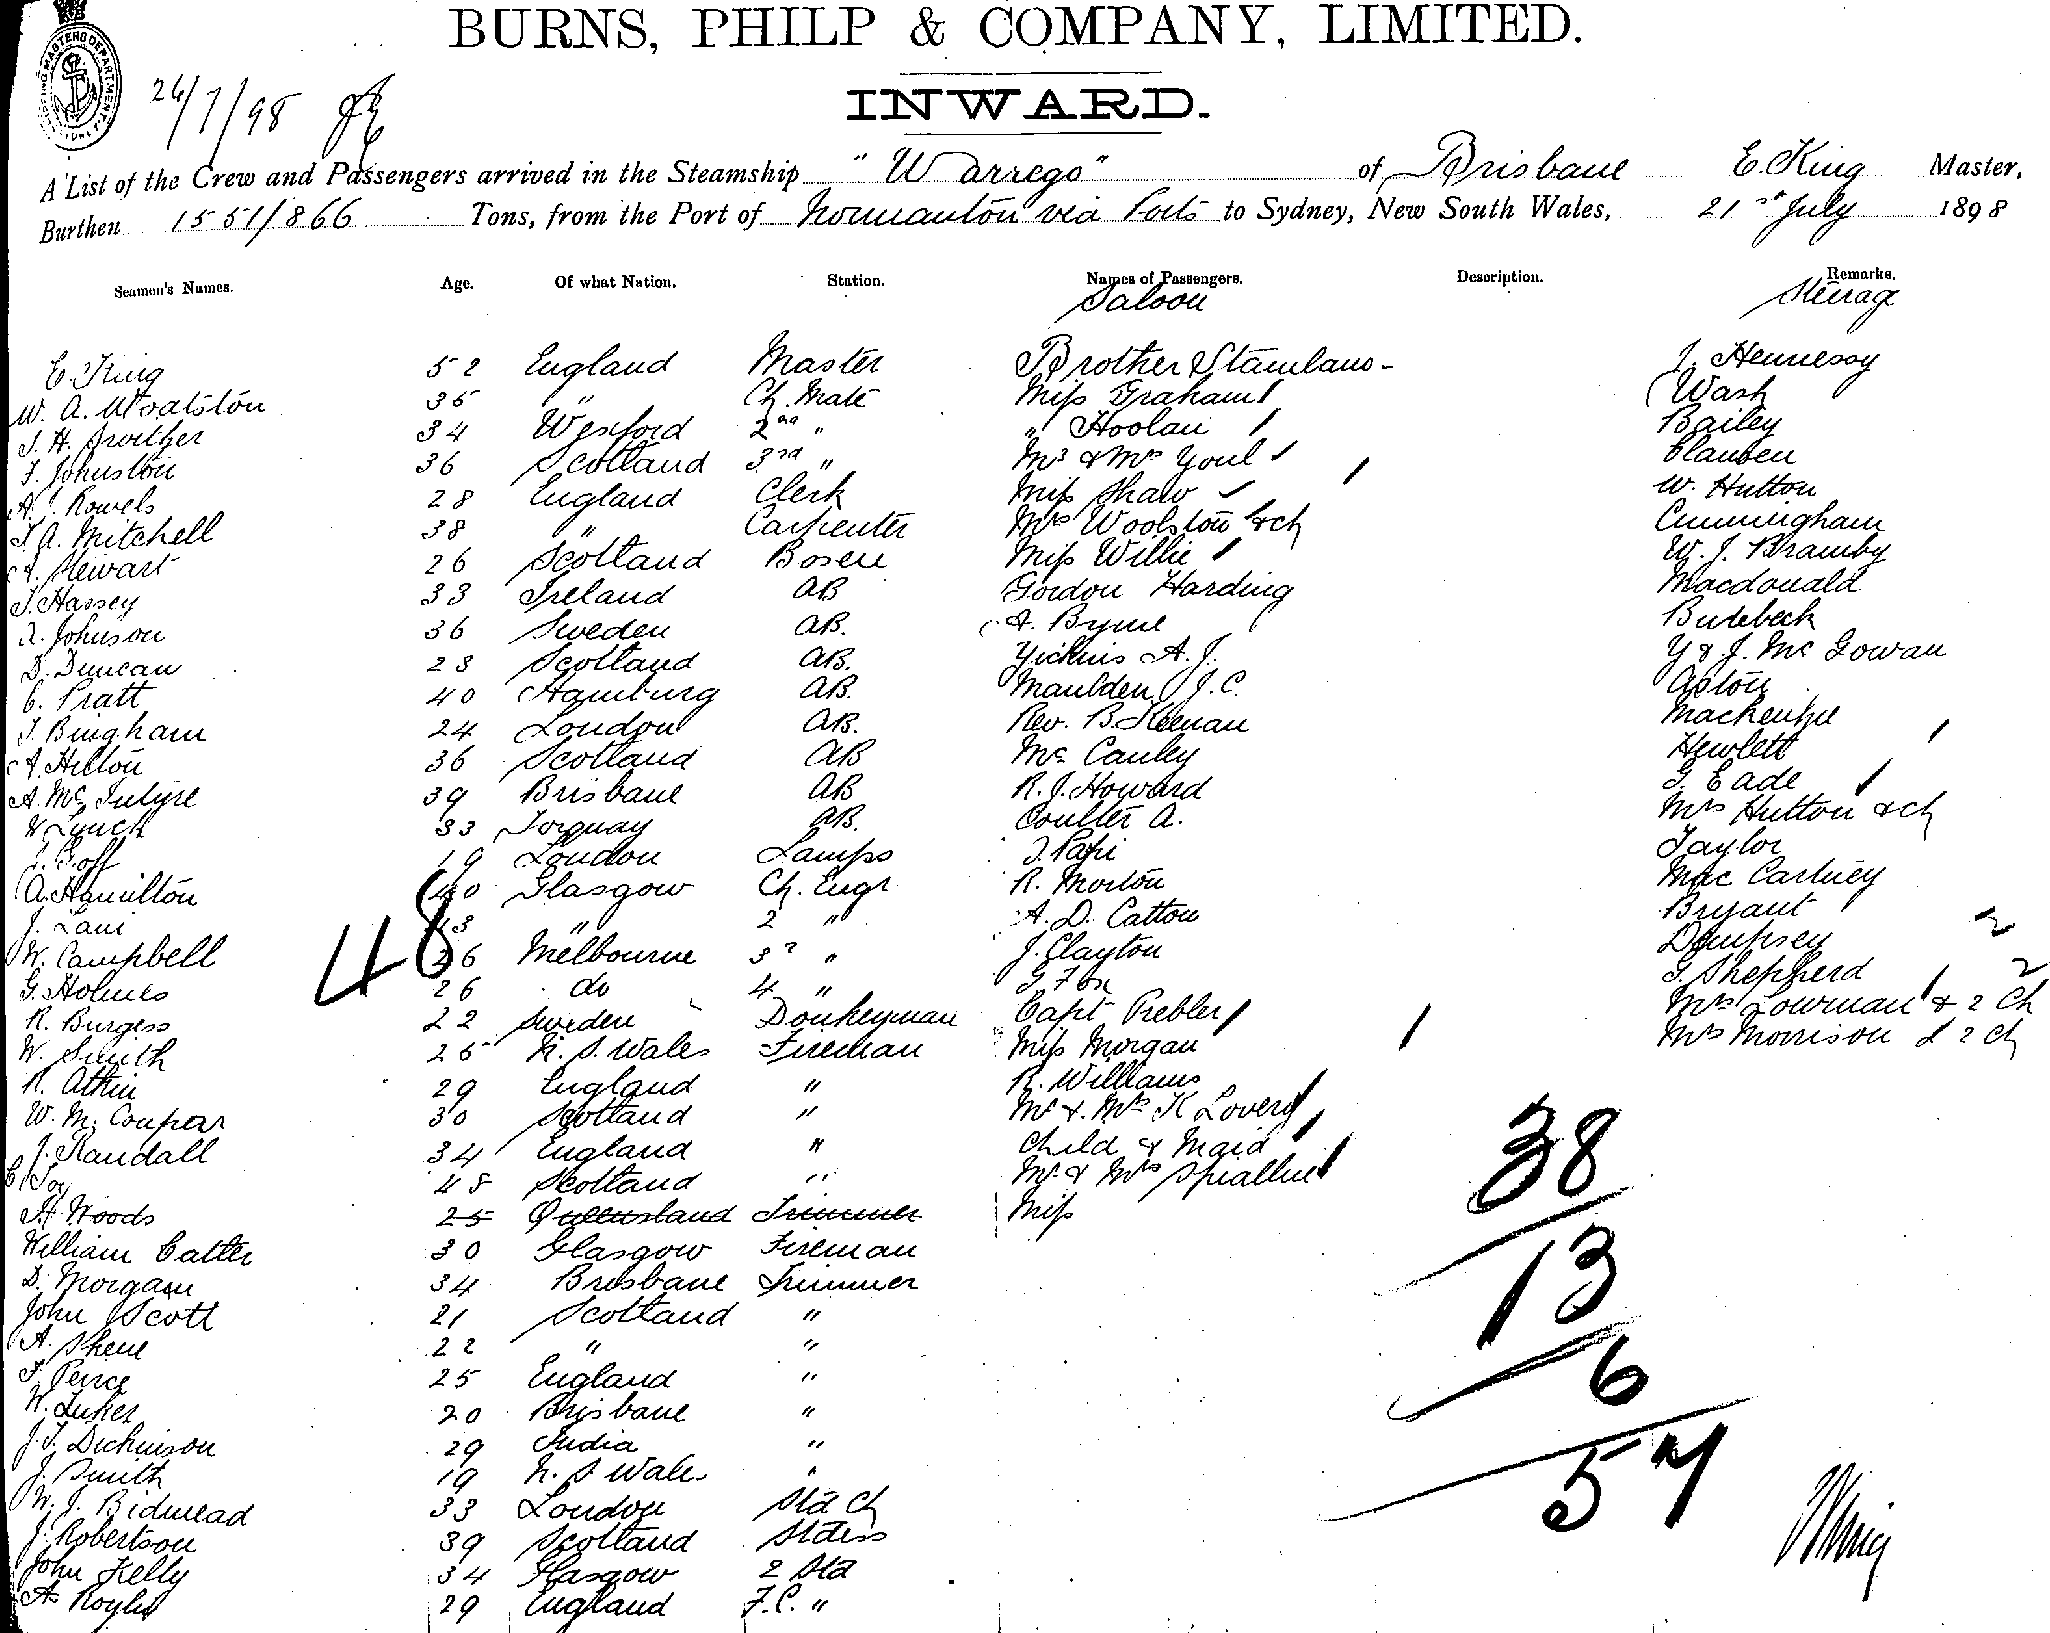 BURNS, PHILP & COMPANY, LIMITED.
INWARD.
26/7/98
A List of the Crew and Passengers arrived in the Steamship "Warrego" of Brisbane E. King Master,
Burthen 1551/866 Tons, from the Port of Normanton via Ports to Sydney, New South Wales, 21st July 1898
Seamen's Names. Age. Of what Nation. Station. Names of Passengers. Description. Remarks.
Saloon Steerage
E. King 52 England Master Brother Stanilaus - J. Hennessy
W. A. Woolston 35 " Ch. Mate Miss Graham Wash
J. H. 34 Wexford 2nd " " Hoolan Bailey
F. Johnston 36 Scotland 3rd " Mr & Mrs Youl Clausen
A. J. Rowels 28 England Clerk Miss Shaw W. Hutton
J. A. Mitchell 38 " Carpenter Mrs Woolston & ch Cunningham
A. Stewart 26 Scotland Bosen Miss Willie W. J. Bramby
J. Hassey 33 Ireland AB Gordon Harding Macdonald
A. Johnson 36 Sweden AB. A. Byrne
D. Duncan 28 Scotland AB. A. J. Y & J. Mc Gowan
C. Pratt 40 Hamburg AB. Maulden J. C. Aston
J. Bingham 24 London AB. Rev. B. Keenan Mackenzie
A. Hilton 36 Scotland AB Mc Cauley Hewlett
A. Mc Intyre 39 Brisbane AB R. J. Howard G. Eade
W. Lynch 33 Torquay AB. Coulter A. Mrs Hutton & ch
Goff 19 London Lamps J. Papi Taylor
A. Hamilton 40 Glasgow Ch. Engr R. Morton Mac Cartney
J. " 2 " A. D. Catton Bryant
W. Campbell 26 Melbourne 3rd " J. Clayton Dempsey
G. Holmes 26 do 4 " G. Fox G. Shepperd
R. Burgess 22 Sweden Donkeyman Capt Prebler Mrs Lowman & 2 Ch
W. Smith 25 N. S. Wales Fireman Miss Morgan Mrs Morrison & 2 ch
48
R. Atkin 29 England " R. Williams
W. M. Coupar 30 Scotland " Mr & Mrs K Lovery
J. Randall 34 England " Child & Maid
C. Toy 45 Scotland " Mr & Mrs
H. Woods 25 Queensland Trimmer Miss
William Catter 30 Glasgow Fireman
D. Morgan 34 Brisbane Trimmer
John Scott 21 Scotland "
A. Skene 22 " "
F. Peirce 25 England "
W. Luker 20 Brisbane "
J. T. Dickinson 29 India "
J. Smith 19 N. S Wales "
W. J. Bidmead 33 London Std Ch
J. Robertson 39 Scotland Stdess
John Kelly 34 Glasgow 2 Std
A. Royle 29 England F.C. "
38
13
6
57